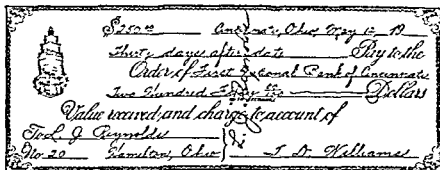 $250.00 Cincinnati, Ohio, May 1st 19
Thirty days after date Pay to the
Order of First National Bank of Cincinnati
Two Hundred Fifty Dollars
Value received and charge to account of
To L. J. Reynolds
No. 20 Hamilton, Ohio J. D. Williams